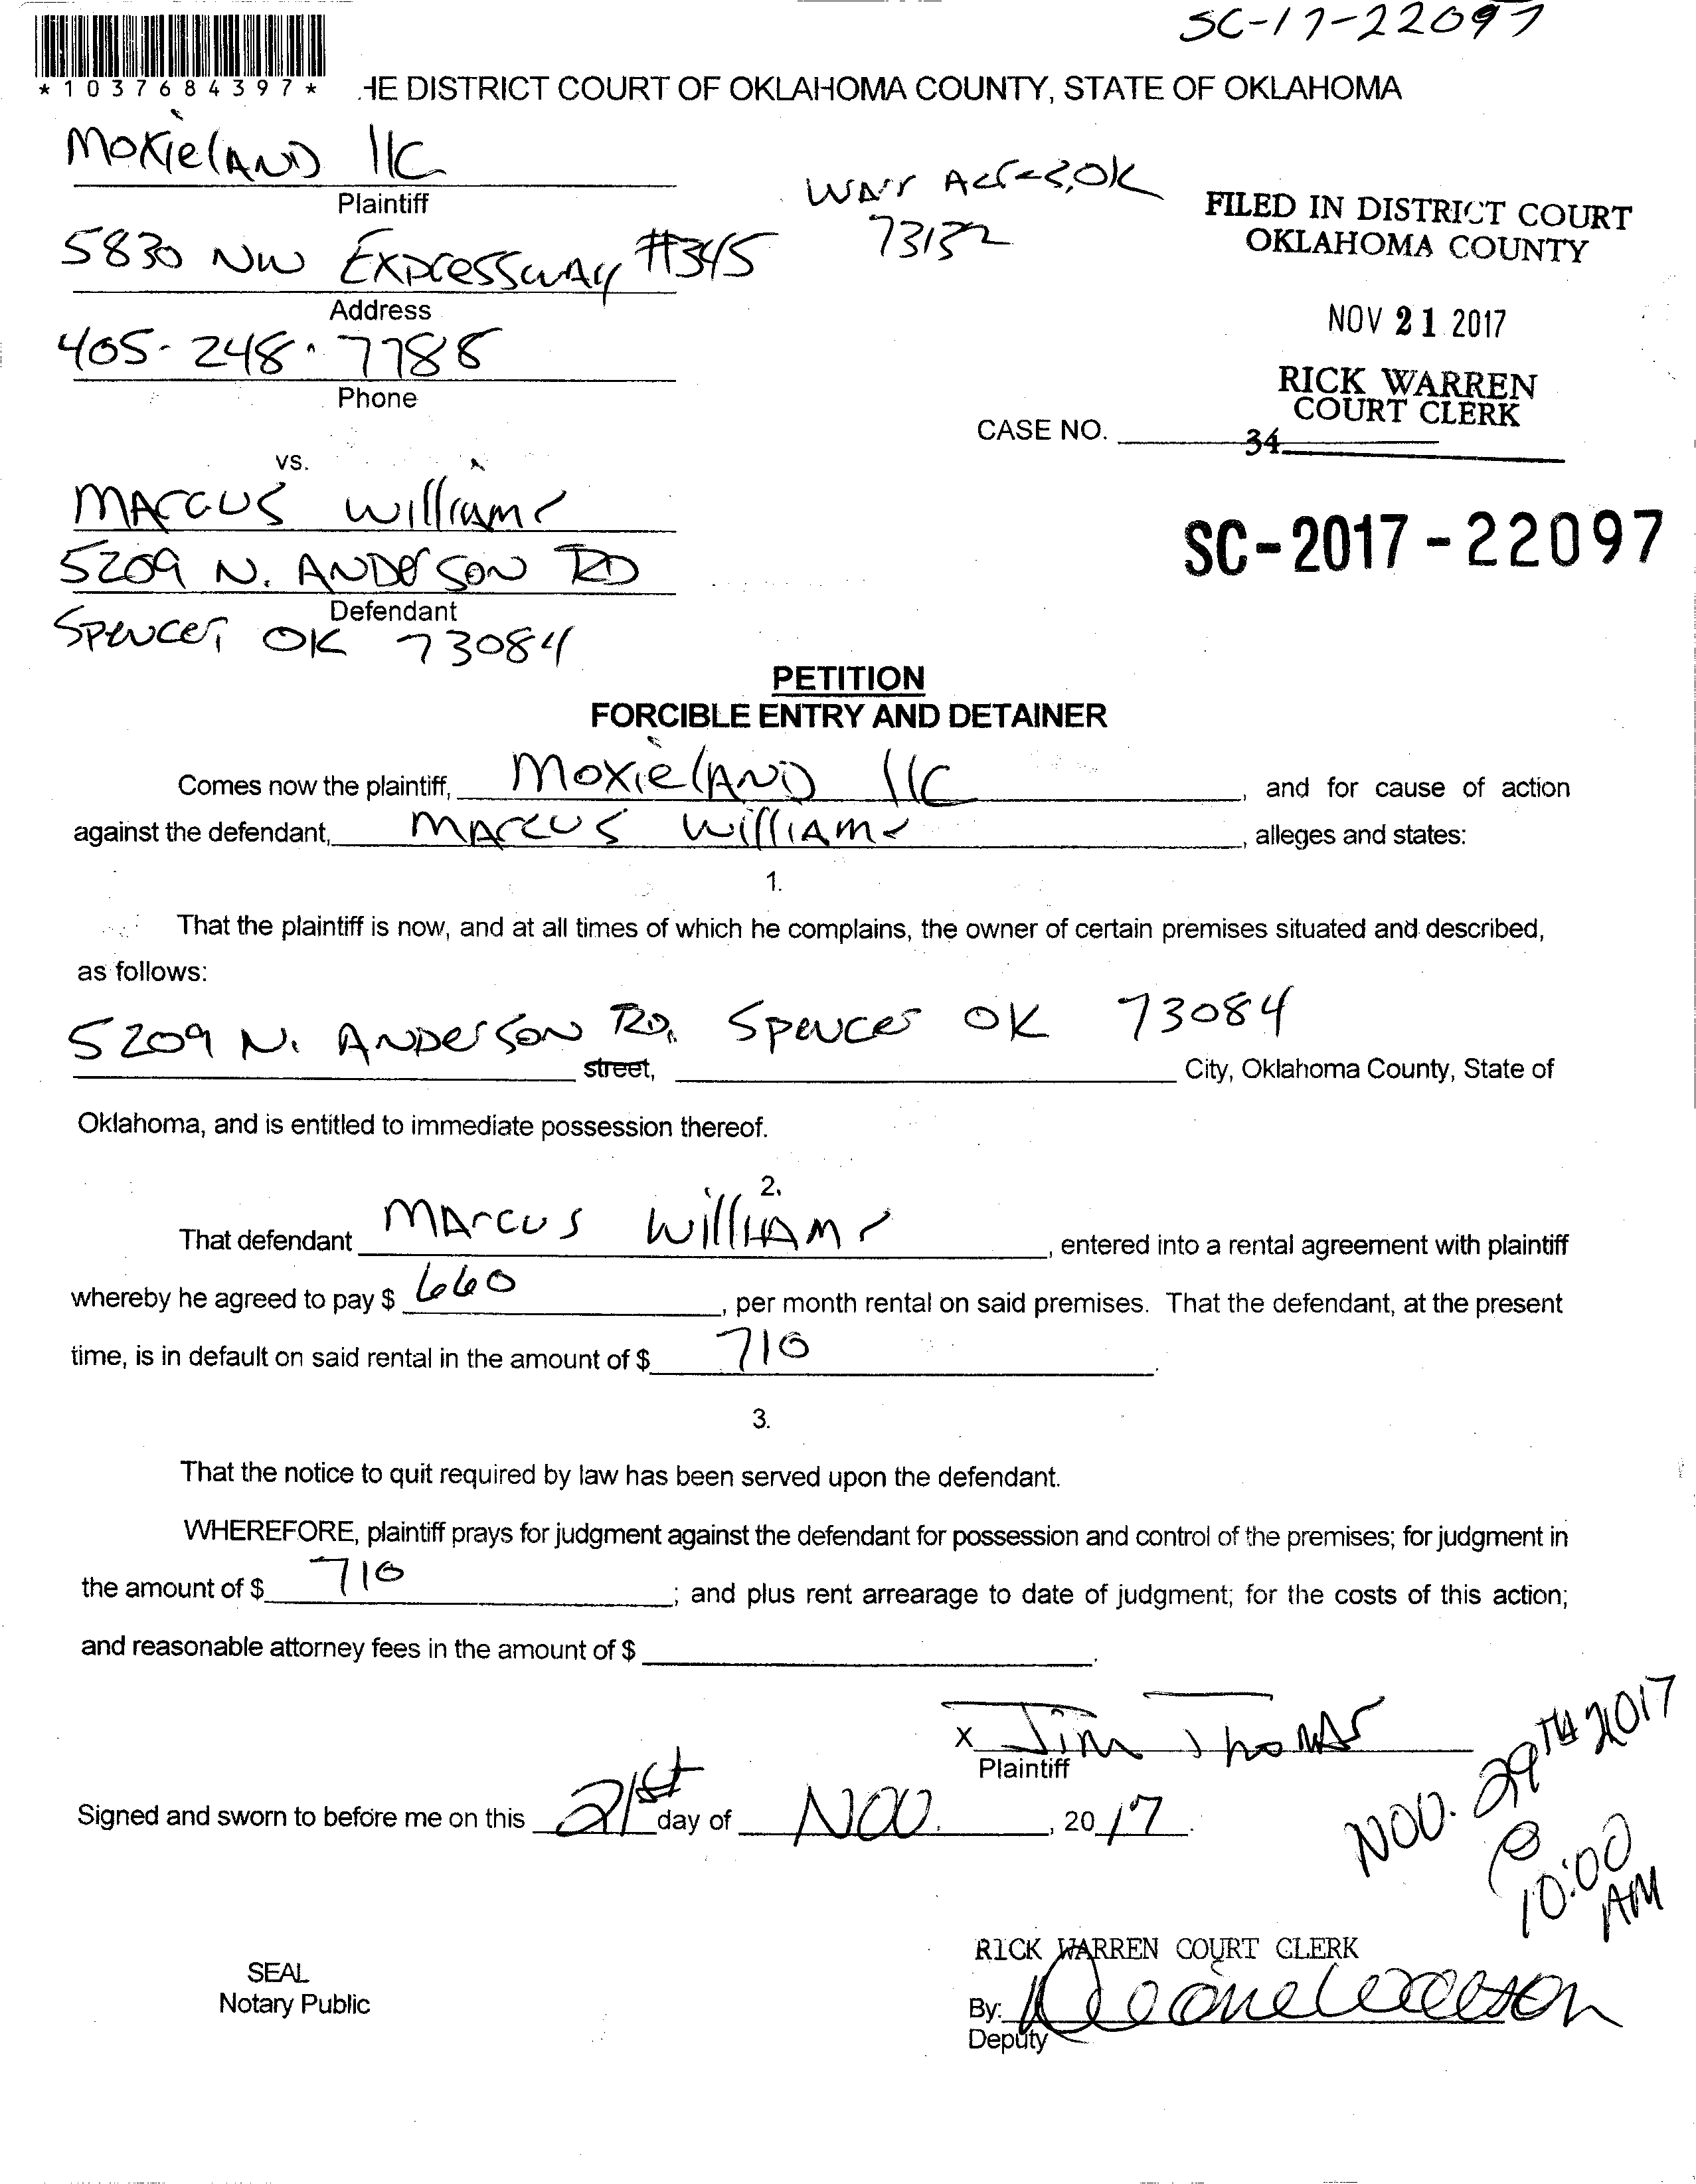 SC-17-22097
*1037684397*
HE DISTRICT COURT OF OKLAHOMA COUNTY, STATE OF OKLAHOMA
Moxieland llc
Plaintiff
Warr Acres, OK
73132
FILED IN DISTRICT COURT
OKLAHOMA COUNTY
5830 NW Expressway #345
Address
NOV 21 2017
405-248-7788
Phone
RICK WARREN
COURT CLERK
CASE NO.
34
vs.
Marcus Williams
SC-2017-22097
5209 N. Anderson RD
Defendant
Spencer, OK 73084
PETITION
FORCIBLE ENTRY AND DETAINER
Comes now the plaintiff, Moxieland llc, and for cause of action
against the defendant, Marcus Williams, alleges and states:
1.
That the plaintiff is now, and at all times of which he complains, the owner of certain premises situated and described,
as follows:
5209 N. Anderson RD. Spencer OK 73084
street, City, Oklahoma County, State of
Oklahoma, and is entitled to immediate possession thereof.
2.
That defendant Marcus Williams, entered into a rental agreement with plaintiff
whereby he agreed to pay $ 660, per month rental on said premises. That the defendant, at the present
time, is in default on said rental in the amount of $ 710.
3.
That the notice to quit required by law has been served upon the defendant.
WHEREFORE, plaintiff prays for judgment against the defendant for possession and control of the premises; for judgment in
the amount of $ 710; and plus rent arrearage to date of judgment; for the costs of this action;
and reasonable attorney fees in the amount of $ .
x Jim Thomas
Plaintiff
Signed and sworn to before me on this 21st day of Nov., 2017.
Nov. 29TH 2017
@
10:00
AM
RICK WARREN COURT CLERK
SEAL
Notary Public
By:
Deputy